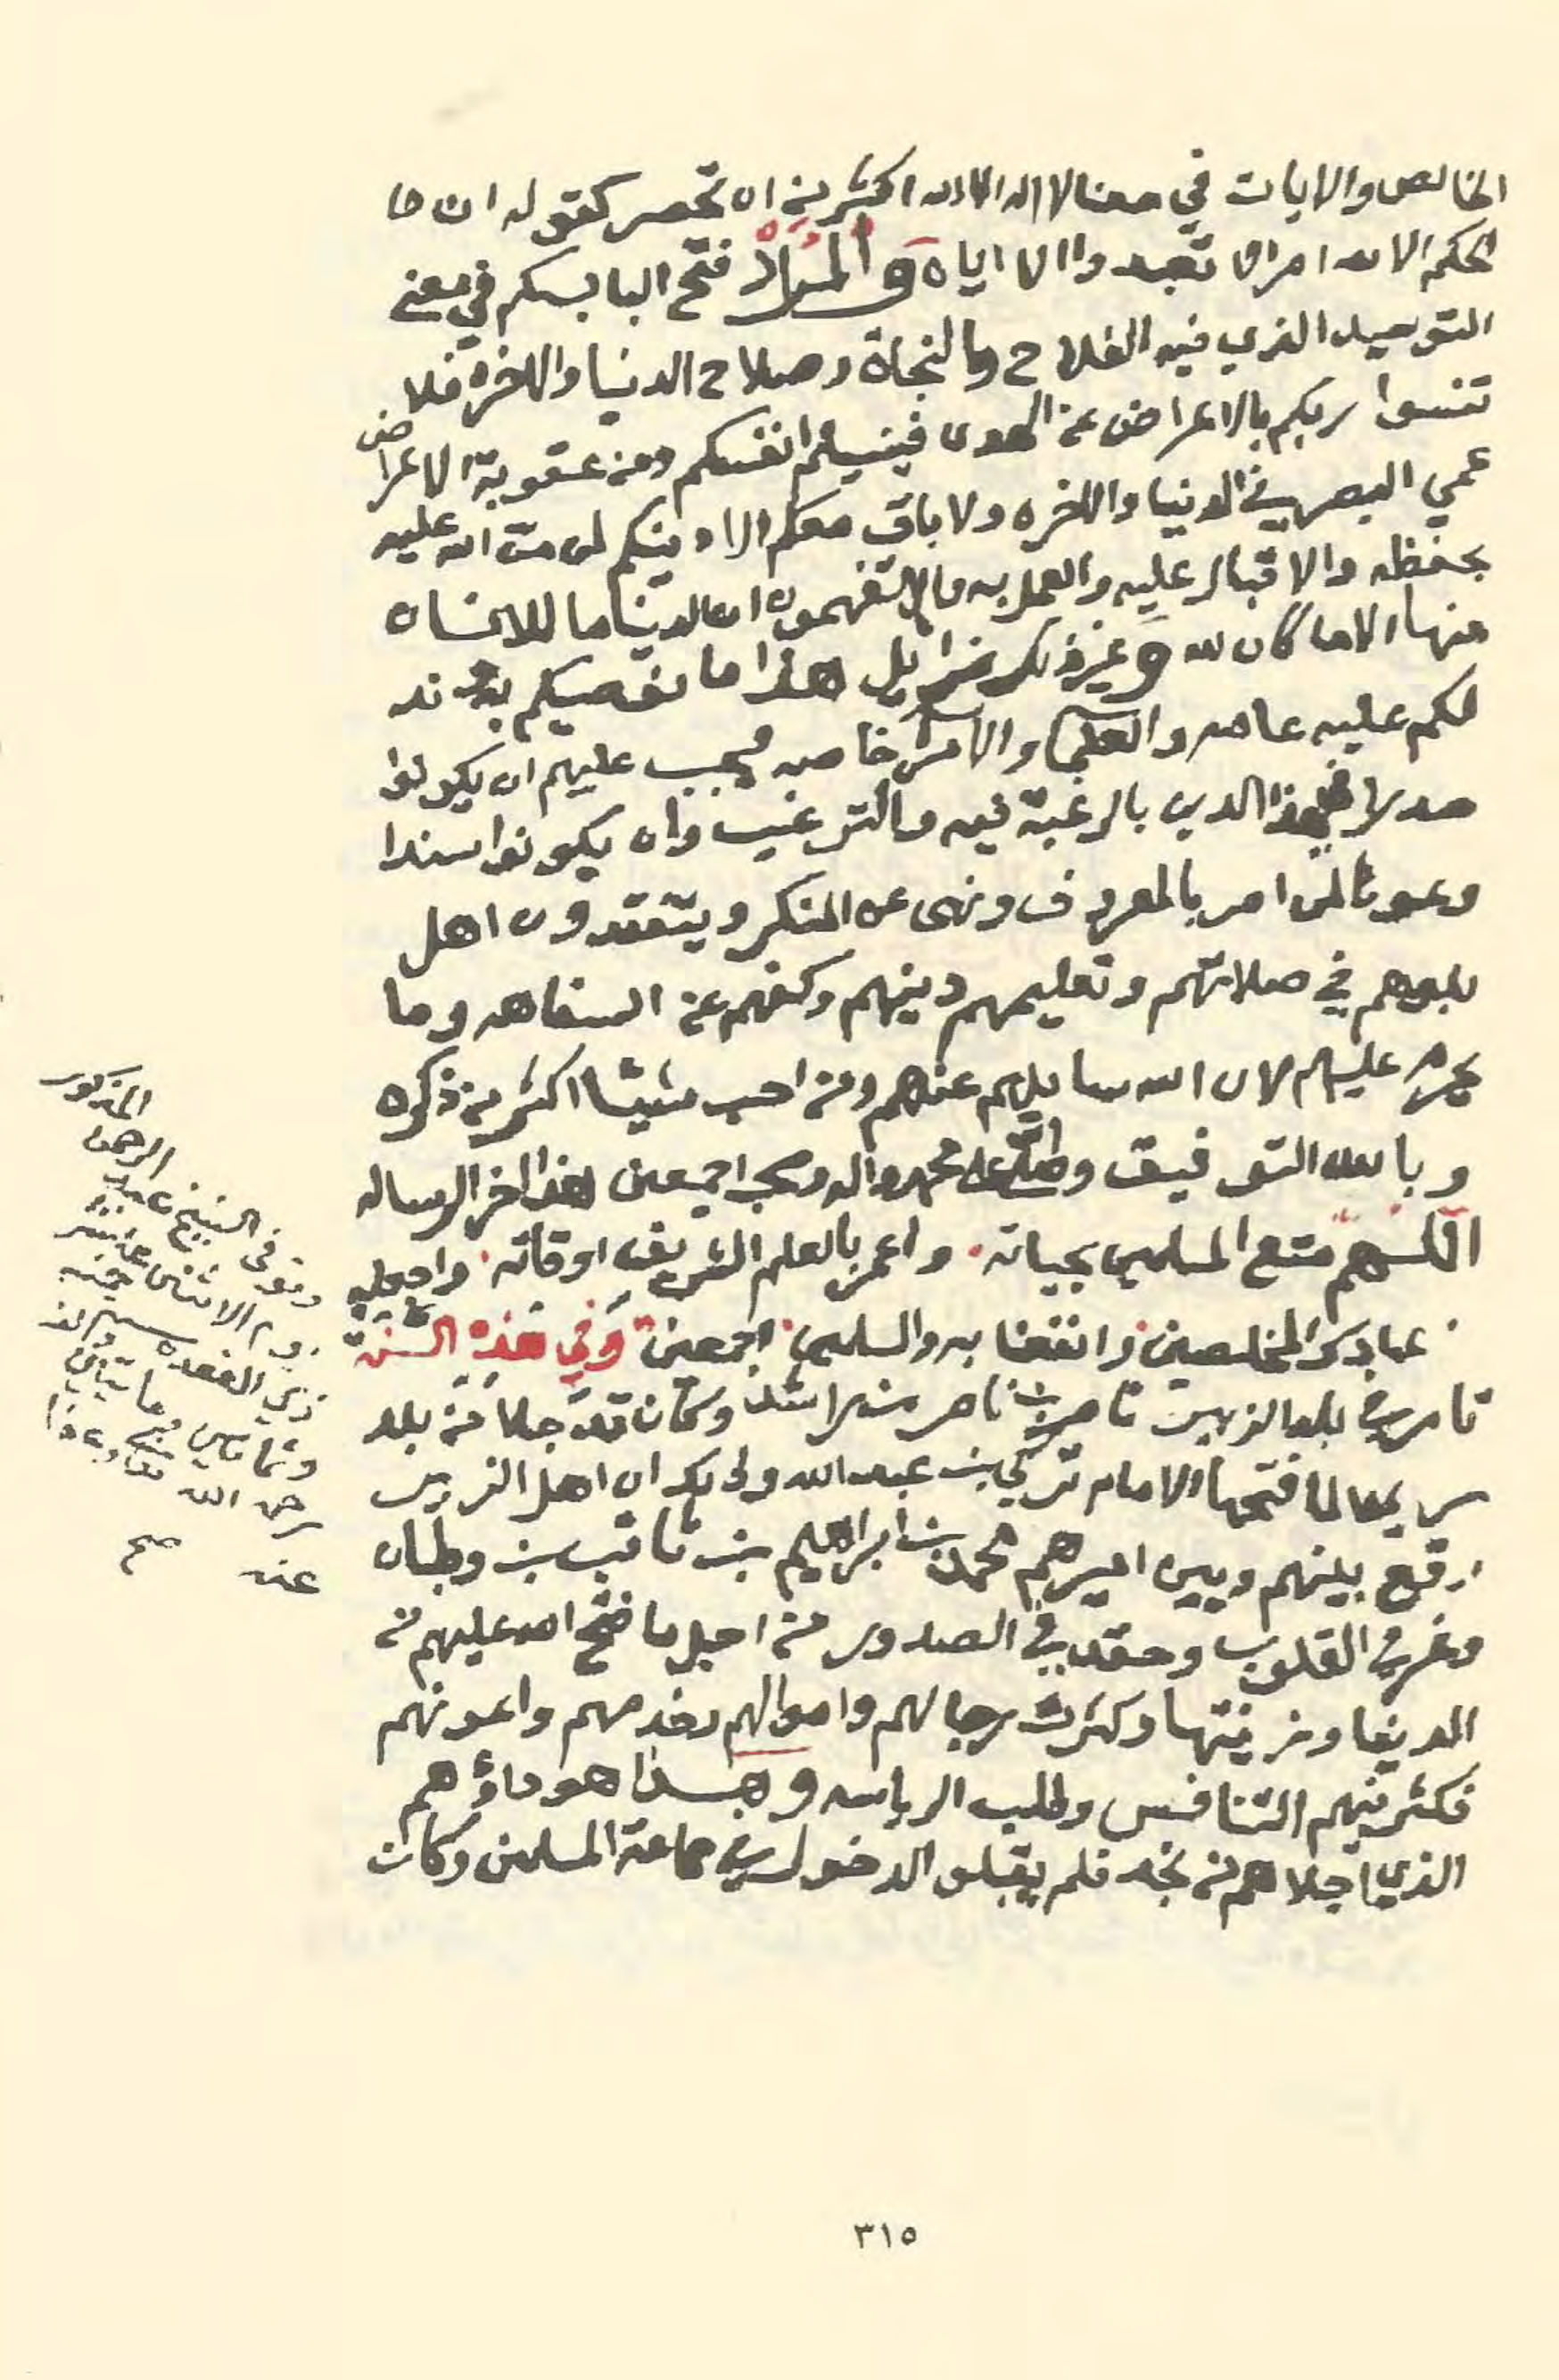 الخالص والايات في معنا لا اله الا الله اكثر من ان تحصر كقوله ان ما
الحكم الا لله امر الا تعبدوا الا اياه والمراد فتح الباب لكم في معنى
التوحيد الذي فيه الفلاح والنجاة وصلاح الدنيا والاخره فلا
تنسوا ربكم بالاعراض عن الهدى فينسيكم انفسكم ومن عقوبة الاعراض
عمي البصر في الدنيا والاخره ولا باق معكم الا دينكم لمن من الله عليه
بحفظه والاقبال عليه والعمل به ما لا تفهمون ان الدنيا ما للانسان
منها الا ما كان لله وغير ذلك زايل هذا ما نوصيكم به وند
لكم عليه عامه والعلما والامرا خاصه فيجب عليهم ان يكونوا
صدرا في هذا الدين بالرغبة فيه والترغيب وان يكونوا سندا
وعونا لمن امر بالمعروف ونهى عن المنكر ويتفقدون اهل
بلدهم في صلاتهم وتعليمهم دينهم وكفهم عن السفاهه وما
يحرم عليهم لان الله سايلهم عنهم ومن احب شيئا اكثر من ذكره
وبالله التوفيق وصلى الله على محمد واله وصحبه اجمعين هذا اخر الرساله
اللهم متع المسلمين بحياته واعمر بالعلم الشريف اوقاته واجعله من
عبادك المخلصين وانفعنا به والمسلمين اجمعين وفي هذه السنة
ثار في بلد الزبير ناصر بن ناصر بن راشد وكان قد جلا من بلد
حريملا لما فتحها الامام تركي بن عبدالله وذلك ان اهل الزبير
وقع بينهم وبين اميرهم محمد بن ابراهيم بن ثاقب بن وطبان
وغر في القلوب وحقد في الصدور من اجل ما فتح الله عليهم من
الدنيا وزينتها وكثرت رجالهم واموالهم وخدمهم واعوانهم
فكثر فيهم التنافس وطلب الرياسه وهذا هو داؤهم
الذي اجلاهم من نجد فلم يقبلو الدخول في جماعة المسلمين وكان
المذكور
وتوفي الشيخ عبد الرحمن
يوم الاثنين عاشر
ذي القعده سنة خمس
وثمانين ومايتين والف
رحمه الله تعالى وعفا
عنه صح
٣١٥